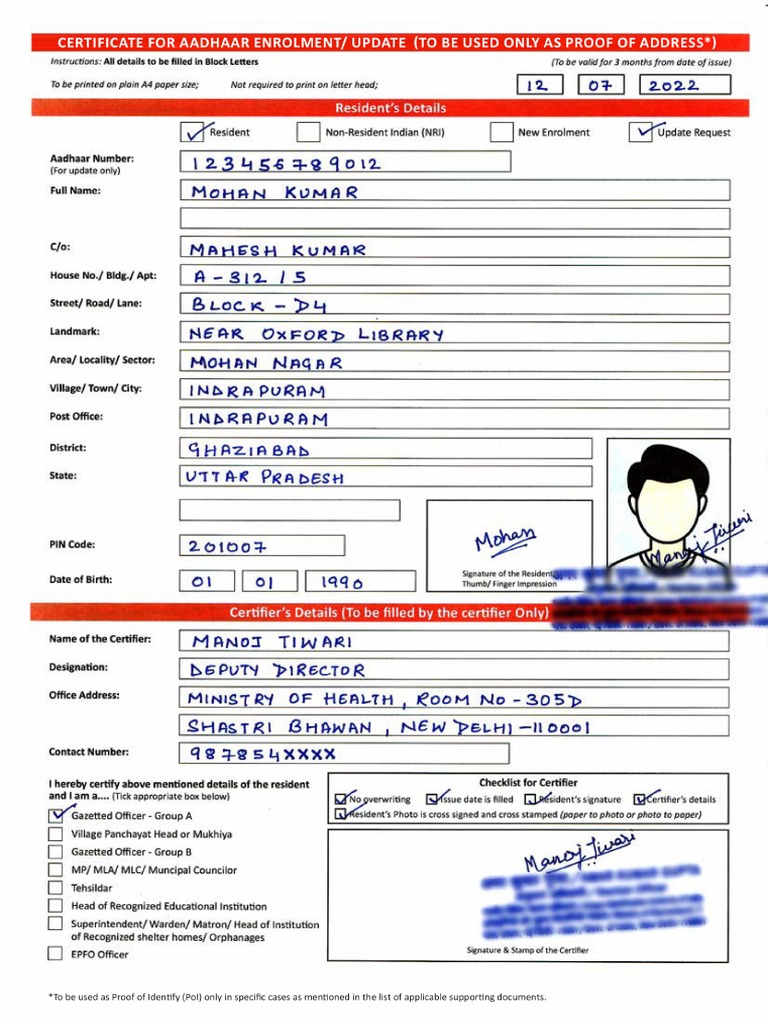 CERTIFICATE FOR AADHAAR ENROLMENT/ UPDATE (TO BE USED ONLY AS PROOF OF ADDRESS*)
Instructions: All details to be filled in Block Letters (To be valid for 3 months from date of issue)
To be printed on plain A4 paper size; Not required to print on letter head; 12 07 2022
Resident's Details
Resident Non-Resident Indian (NRI) New Enrolment Update Request
Aadhaar Number: 123456789012
(For update only)
Full Name: MOHAN KUMAR
C/o: MAHESH KUMAR
House No./ Bldg./ Apt: A-312/5
Street/ Road/ Lane: BLOCK - D4
Landmark: NEAR OXFORD LIBRARY
Area/ Locality/ Sector: MOHAN NAGAR
Village/ Town/ City: INDRAPURAM
Post Office: INDRAPURAM
District: GHAZIABAD
State: UTTAR PRADESH
Mohan
Manoj Tiwari
PIN Code: 201007
Signature of the Resident
Thumb/ Finger Impression
Date of Birth: 01 01 1990
Certifier's Details (To be filled by the certifier Only)
Name of the Certifier: MANOJ TIWARI
Designation: DEPUTY DIRECTOR
Office Address: MINISTRY OF HEALTH, ROOM NO - 305D
SHASTRI BHAWAN, NEW DELHI-110001
Contact Number: 987854XXXX
I hereby certify above mentioned details of the resident
and I am a.... (Tick appropriate box below)
Gazetted Officer - Group A
Village Panchayat Head or Mukhiya
Gazetted Officer - Group B
MP/ MLA/ MLC/ Muncipal Councilor
Tehsildar
Head of Recognized Educational Institution
Superintendent/ Warden/ Matron/ Head of Institution
of Recognized shelter homes/ Orphanages
EPFO Officer
Checklist for Certifier
No overwriting Issue date is filled Resident's signature Certifier's details
Resident's Photo is cross signed and cross stamped (paper to photo or photo to paper)
Manoj Tiwari
Signature & Stamp of the Certifier
*To be used as Proof of Identify (PoI) only in specific cases as mentioned in the list of applicable supporting documents.